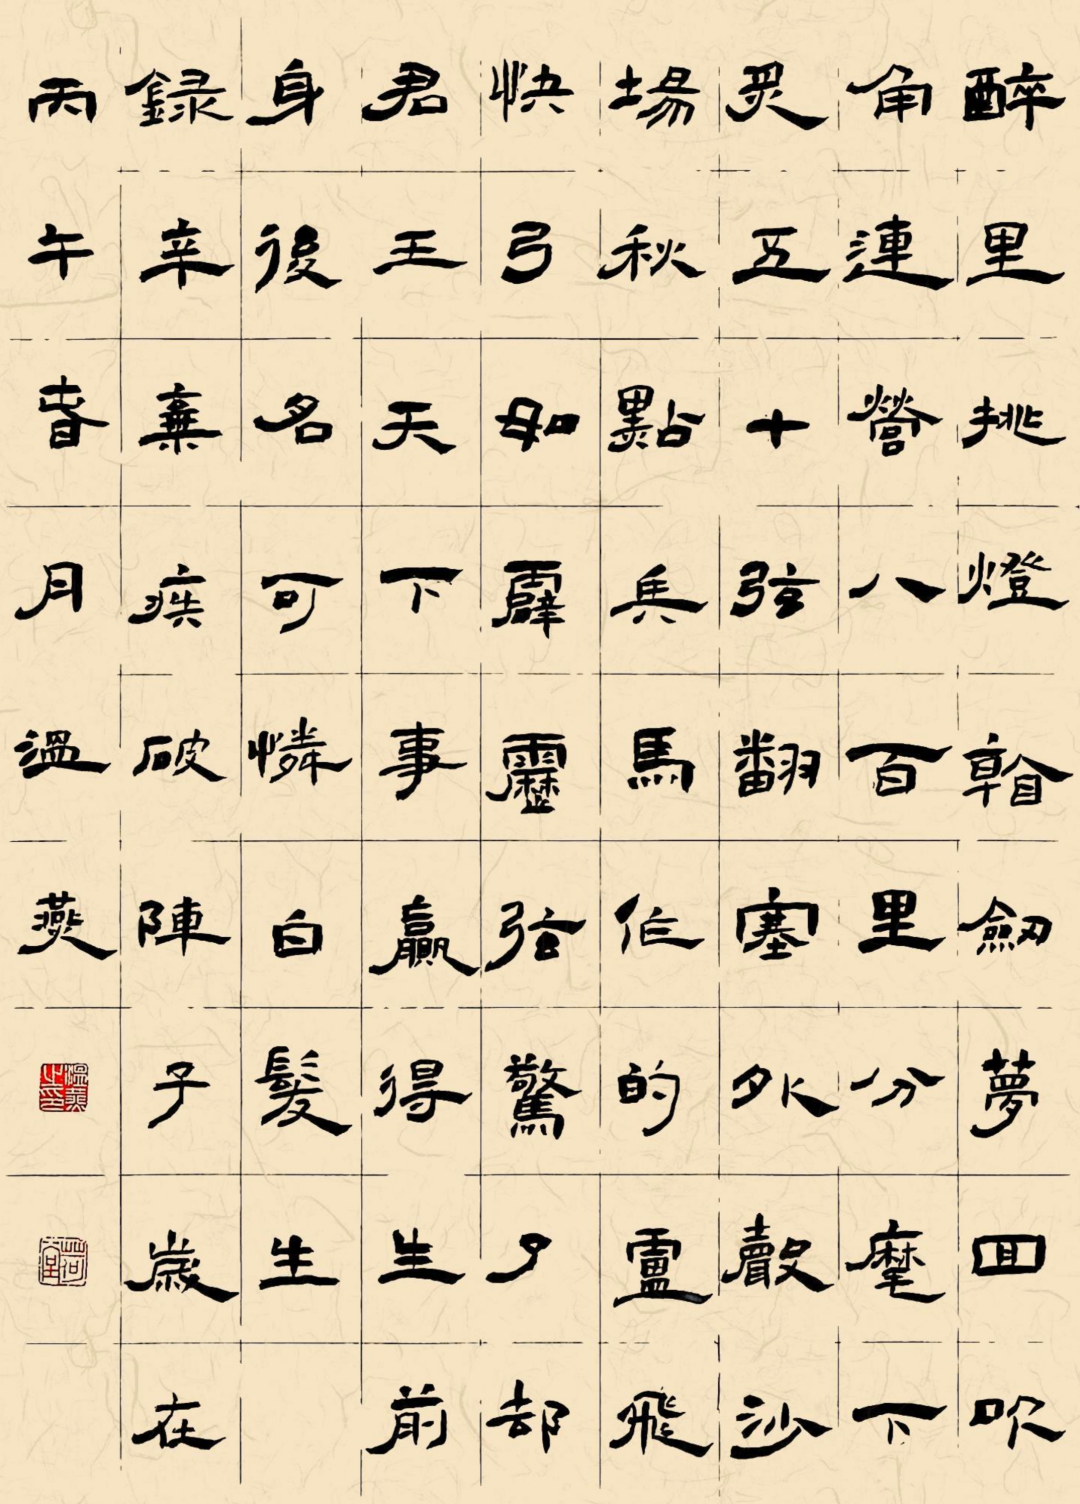 醉里挑燈看劍夢回吹
角連營八百里分麾下
炙五十弦翻塞外聲沙
場秋點兵馬作的盧飛
快弓如霹靂弦驚了却
君王天下事贏得生前
身後名可憐白髮生
錄辛棄疾破陣子歲在
丙午春月溫燕
溫燕之印
荷堂